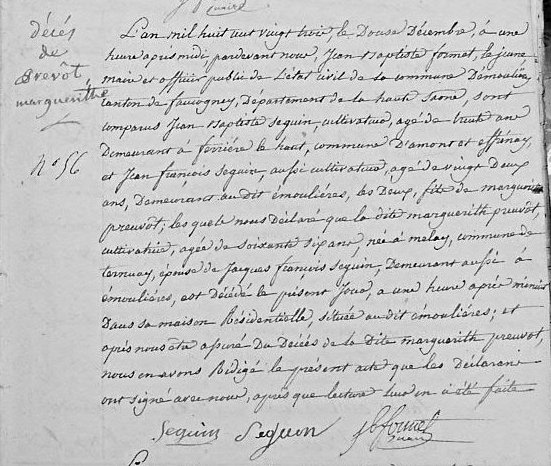 décés
de
Brevôt,
marguerithe
N° 56
L'an mil huit cent vingt trois, le Douse Décembre, à une
heure après midi, pardevant nous, Jean Baptiste formet, le jeune
maire et officier public de L'état civil de la commune Démoulier,
canton de faucogney, Département de la haute Saone, sont
comparus Jean Baptiste seguin, cultivateur, agé de trente ans
Demeurant à ferrière le haut, commune D'amont et Effrenay,
et Jean françois Seguin, aussi cultivateur, agé de vingt Deux
ans, Demeurant au dit émoulières, les Deux, fils de marguerite
preuvôt; les quels nous Déclaré que la dite marguerith preuvôt,
cultivatrice, agée de soixante six ans, née à melay, commune de
ternuay, épouse de Jacques françois Seguin, Demeurant aussi à
émoulières, est Décédé le présent Jour, a une heure après minuit
Dans sa maison Résidentielle, située au dit émoulières; et
après nous être assuré Du Décés de la Dite marguerith preuvot,
nous en avons Rédigé le présent acte que les déclarans
ont signé avec nous, après que lecture leur en à été faite
Seguin Seguin jbformet
maire